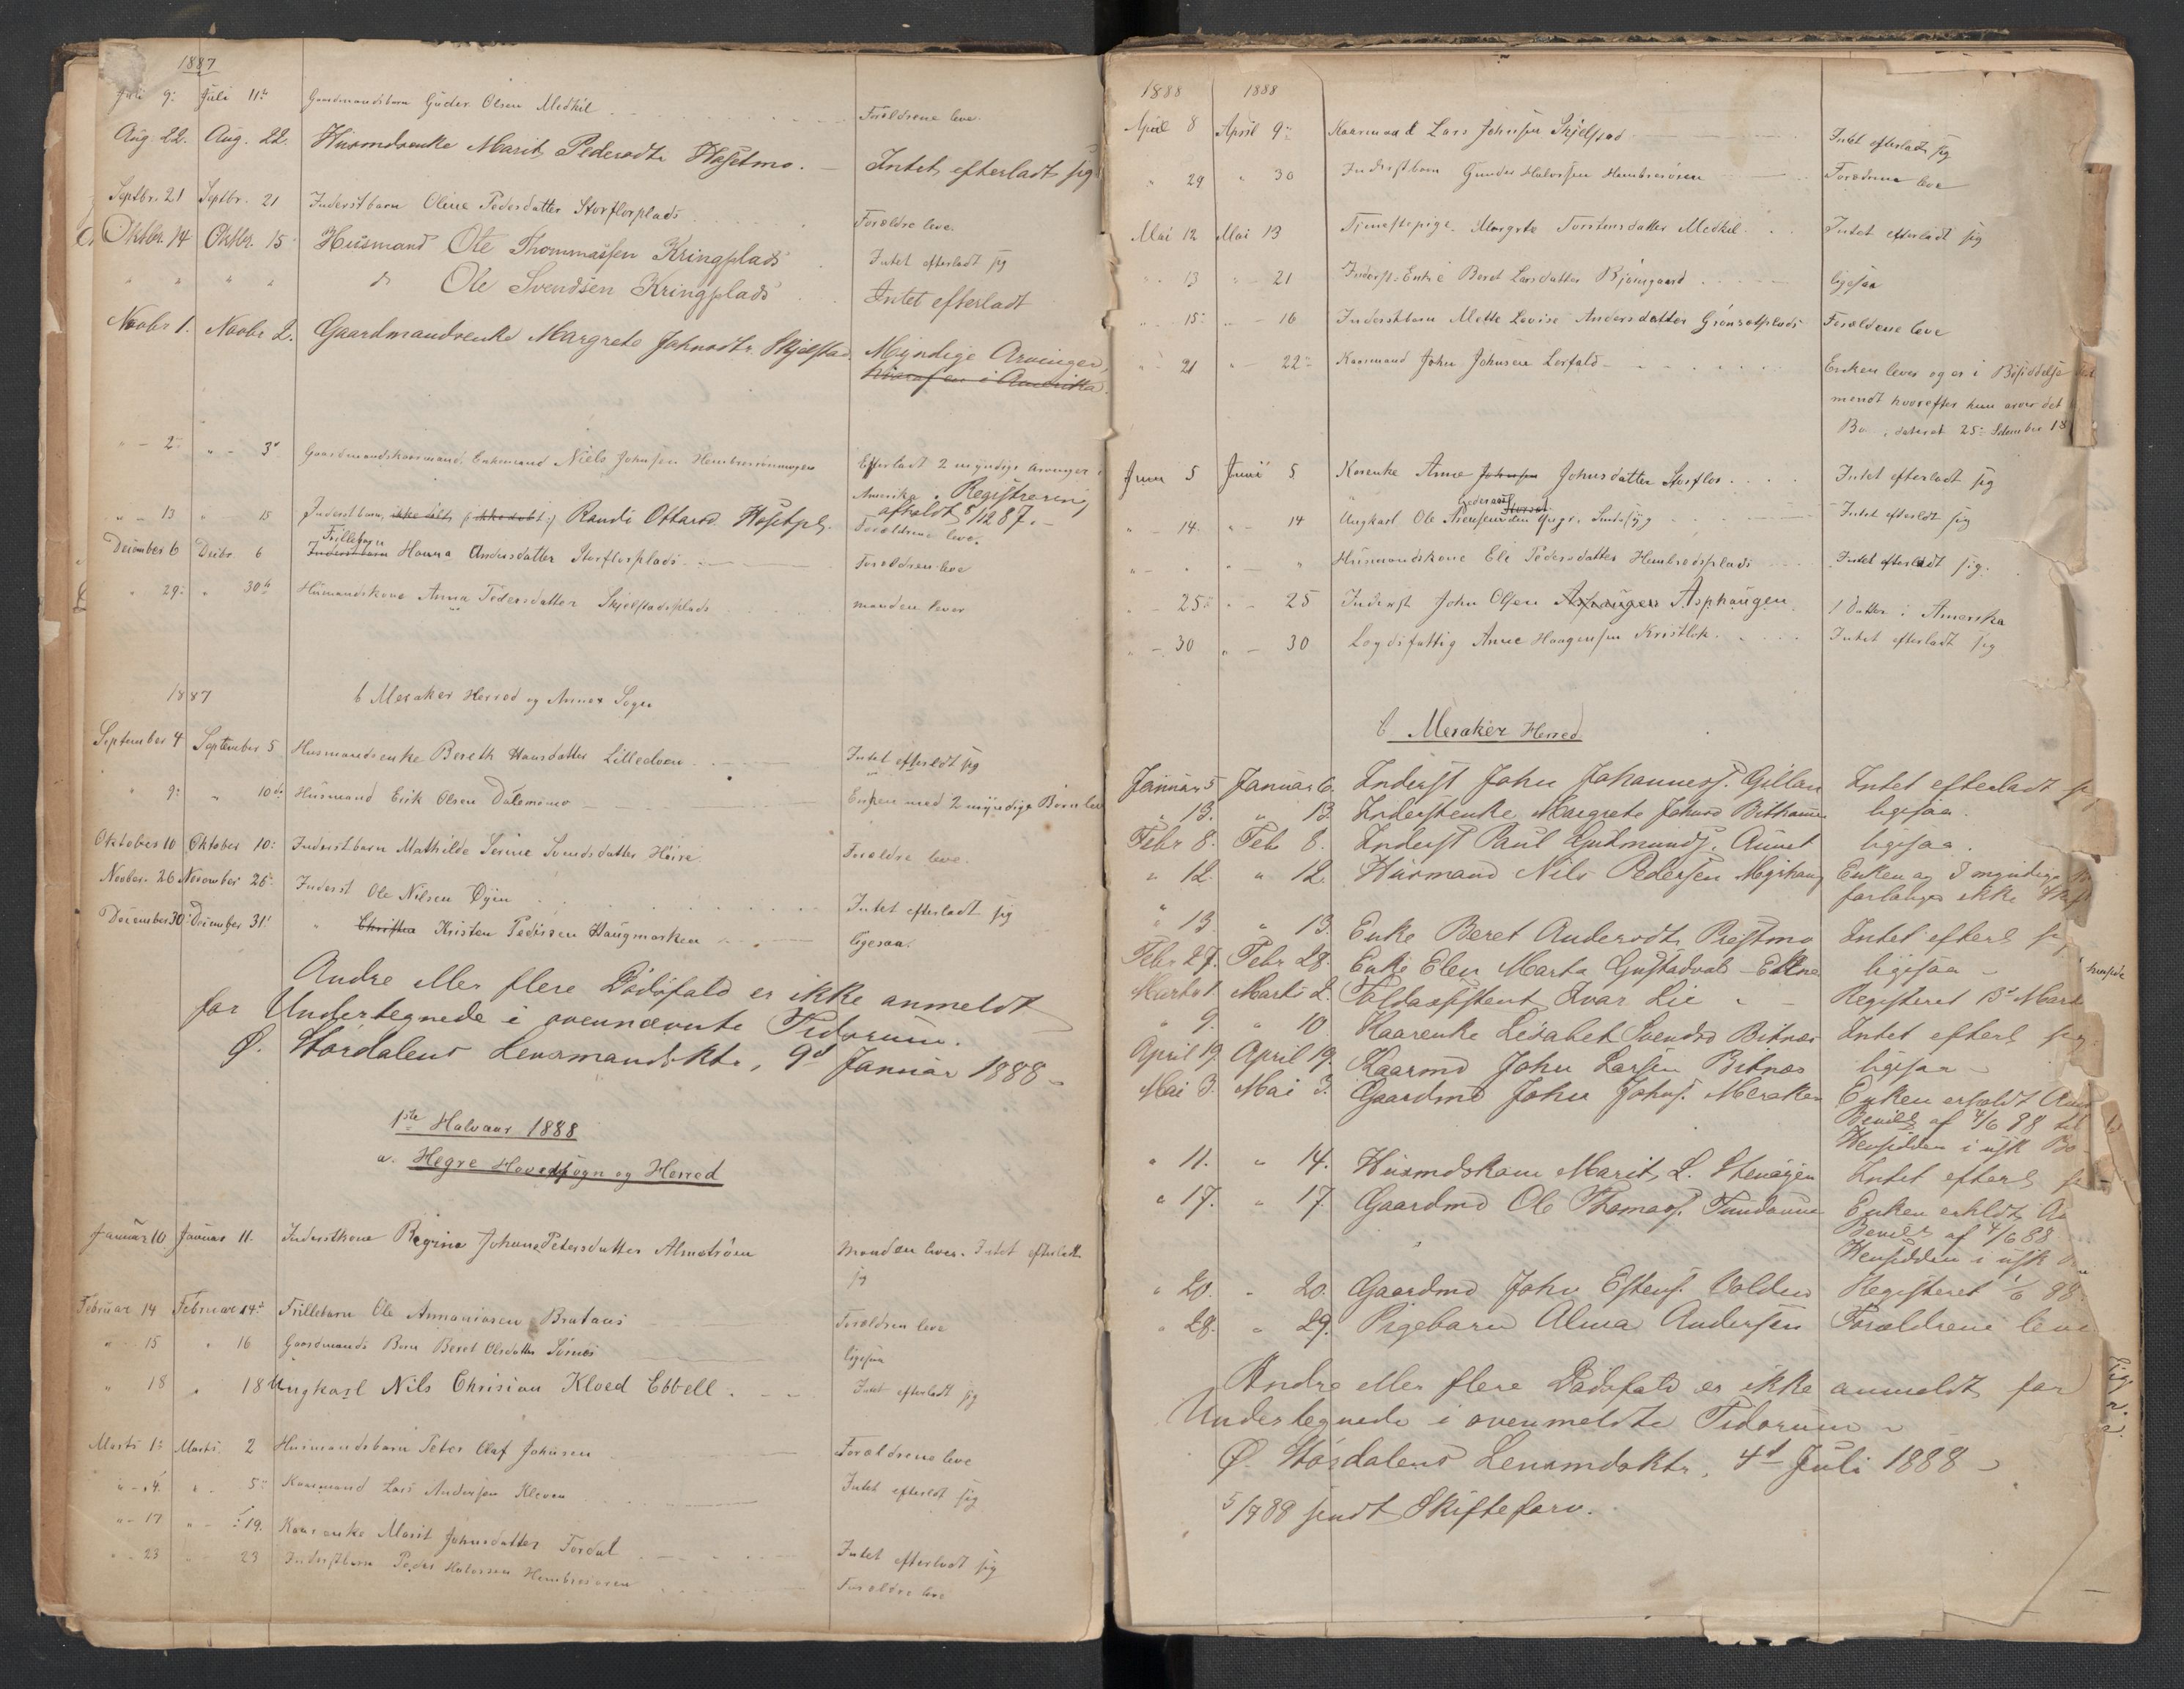 1887
Juli 9. Juli 11te Gaardmandsbarn Guder Olsen Medkil Forældrene leve.
Aug. 22. Aug. 22. Husmdsenke Marit Pedersdtr. Hosetmo. Intet efterladt sig
Septbr. 21 Septbr. 21 Inderstbarn Oline Pedersdatter Storflorplads Forældre leve.
Oktbr. 14 Oktbr. 15 Husmand Ole Thommassen Kringplads Intet efterladt sig
" " " " do Ole Svendsen Kringplads Intet efterladt
Novbr 1. Novbr 2. Gaardmandsenke Margrete Johnsdtr. Skjelstad Myndige Arvinger,
i Amerika.
" - 2. " - 3. Niels Johnsen Efterladt 2 myndige Arvinger i
Amerika. Registrering
" " 13 " 15 Inderstbarn, Randi Ottarsd. Hosetpl. afholdt 8/12 87. -
Forældrene leve.
Trillebarn
December 6 Decbr. 6 Inderstbarn Hanna Andersdatter Storflorplads Forældren leve
" 29. " 30te Husmandskone Anna Pedersdatter Skjelstadplads manden lever
1887 b Meraker Herred og Annex Sogn
September 4 September 5 Husmandsenke Bereth Hansdatter Lillemoen Intet efterladt sig
" 9. " 10de Husmand Erik Olsen Dalemomo Enken med 2 myndige Børn lev
Oktober 10 Oktober 10. Inderstbarn Mathilde Serine Svendsdatter Forældre leve.
Novber. 26 November 26. Inderst Ole Nilsen Øyen Intet efterladt sig
December 30 December 31. " Christen Kristen Pedersen Haugmarken ligesaa.
Andre eller flere Dødsfald er ikke anmeldt
for Undertegnede i ovennævnte Tidsrum.
Ø. Størdalens Lensmandsktr., 9d Januar 1888 -
1ste Halvaar 1888
a. Hegre Hovedsogn og Herred
Januar 10 Januar 11. Inderstkone Regina Johanne Petersdatter Almstrøm Manden lever. Intet efterladt
sig
Februar 14 Februar 14. Trillebarn Ole Annaniasen Brataas Forældren leve
" - 15 " 16 Gaardmands Barn Beret Olsdatter ligesaa
" 18 " 18 Ungkarl Nils Chrisian Kloed Ebbell Intet efterladt sig
Marts 1. Marts. 2 Husmandsbarn Peter Olaf Johnsen Forældrene leve
" - 4. " - 5. Kaarmand Lars Andersen Kleven Intet efterladt sig
" - 17 " - 19. Kaarenke Marit Johnsdatter Fordal Intet efterladt sig
" - 23 " 23 Inderstbarn Peder Halvorsen Forældre leve
1888 1888
April 8 April 9. Kaarmand Lars Johnsen Skjelstad Intet efterladt sig
" 29 " 30 Inderstbarn Gunder Halvorsen Forældrene leve
Mai 12 Mai 13 Tjenestepige Margrete Torstensdatter Medkil Intet efterladt sig
" 13 " - 21 Inderst-Enke Beret Larsdatter Bjørngaard ligesaa
" - 15. " - 16 Inderstbarn Mette Lovise Andersdatter Grønsetplads Forældrene leve
" - 21 " - 22. Kaarmand John Johnsen Lerfald Enken lever og er i
hvorefter hun det
Bo, dateret 25. 18
Juni 5 Juni 5 Kaarenke Anne Johnsen Johnsdatter Storflor Intet efterladt sig
" - 14. " - 14 Ungkarl Ole Intet efterladt sig
" - " " - " Husmandskone Eli Pedersdatter Hembredsplads Intet efterladt sig.
" - 25. " - 25 Inderst John Olsen Asphaugen Asphaugen 1 datter i Amerika
" - 30 " - 30 Lægdsfattig Anne Haagensen Intet efterladt sig
b Meraker Herred
Januar 5 Januar 6. Inderst John Johanness. Gillan Intet efterladt s
" 13. " 13 Inderstenke Margrete Johnsd ligesaa.
Febr 8. Feb 8. Inderst Paul Gudmunds. Aunet ligesaa.
" 12. " 12. Husmand Nils Pedersen Enken og 3 myndige
forlanges ikke
" 13. " 13. Enke Beret Andersdtr. Prestmo Intet efterl s
Febr 27. Febr 28. Enke Elen Marta ligesaa -
Marts 1. Marts 2. Toldassistent Ivar Lie " - Registreret 13d Marts
" 9. " 10. Kaarenke Lisabet Svendsd Bitnes Intet efterl sig.
April 19. April 19. Kaarmd John Larsen Bitnes ligesaa -
Mai 3. Mai 3. Gaardmd John Johns. Meraker Enken erholdt
Bevilg af 4/6 88 til
Hensidden i usk Bo
" 11. " 14. Husmdskone Marit L. Stenøyen Intet efterl s
" 17. " 17. Gaardmd Ole Thomass. Enken erhldt
Bevilg af 4/6 88
Hensidden i usk
" 20. " 20. Gaardmd John Estens. Volden Registreret 1/6 88.
" 28. " 29. Pigebarn Alma Andersen Forældrene leve
Andre eller flere Dødsfald er ikke anmeldt for
Undertegnede i ovenmeldte Tidsrum -
Ø. Størdalens Lensmdsktr. 4d Juli 1888 -
5/7 88 sendt Skifteforv.